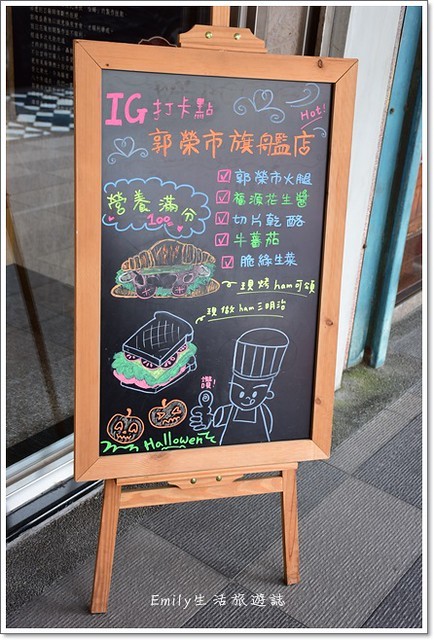 IG打卡點
Hot!
郭榮市旗艦店
營養滿分
100
郭榮市火腿
福源花生醬
切片乾酪
牛蕃茄
脆絲生菜
現烤ham可頌
現做ham三明治
讚!
Hallowen
Emily生活旅遊誌